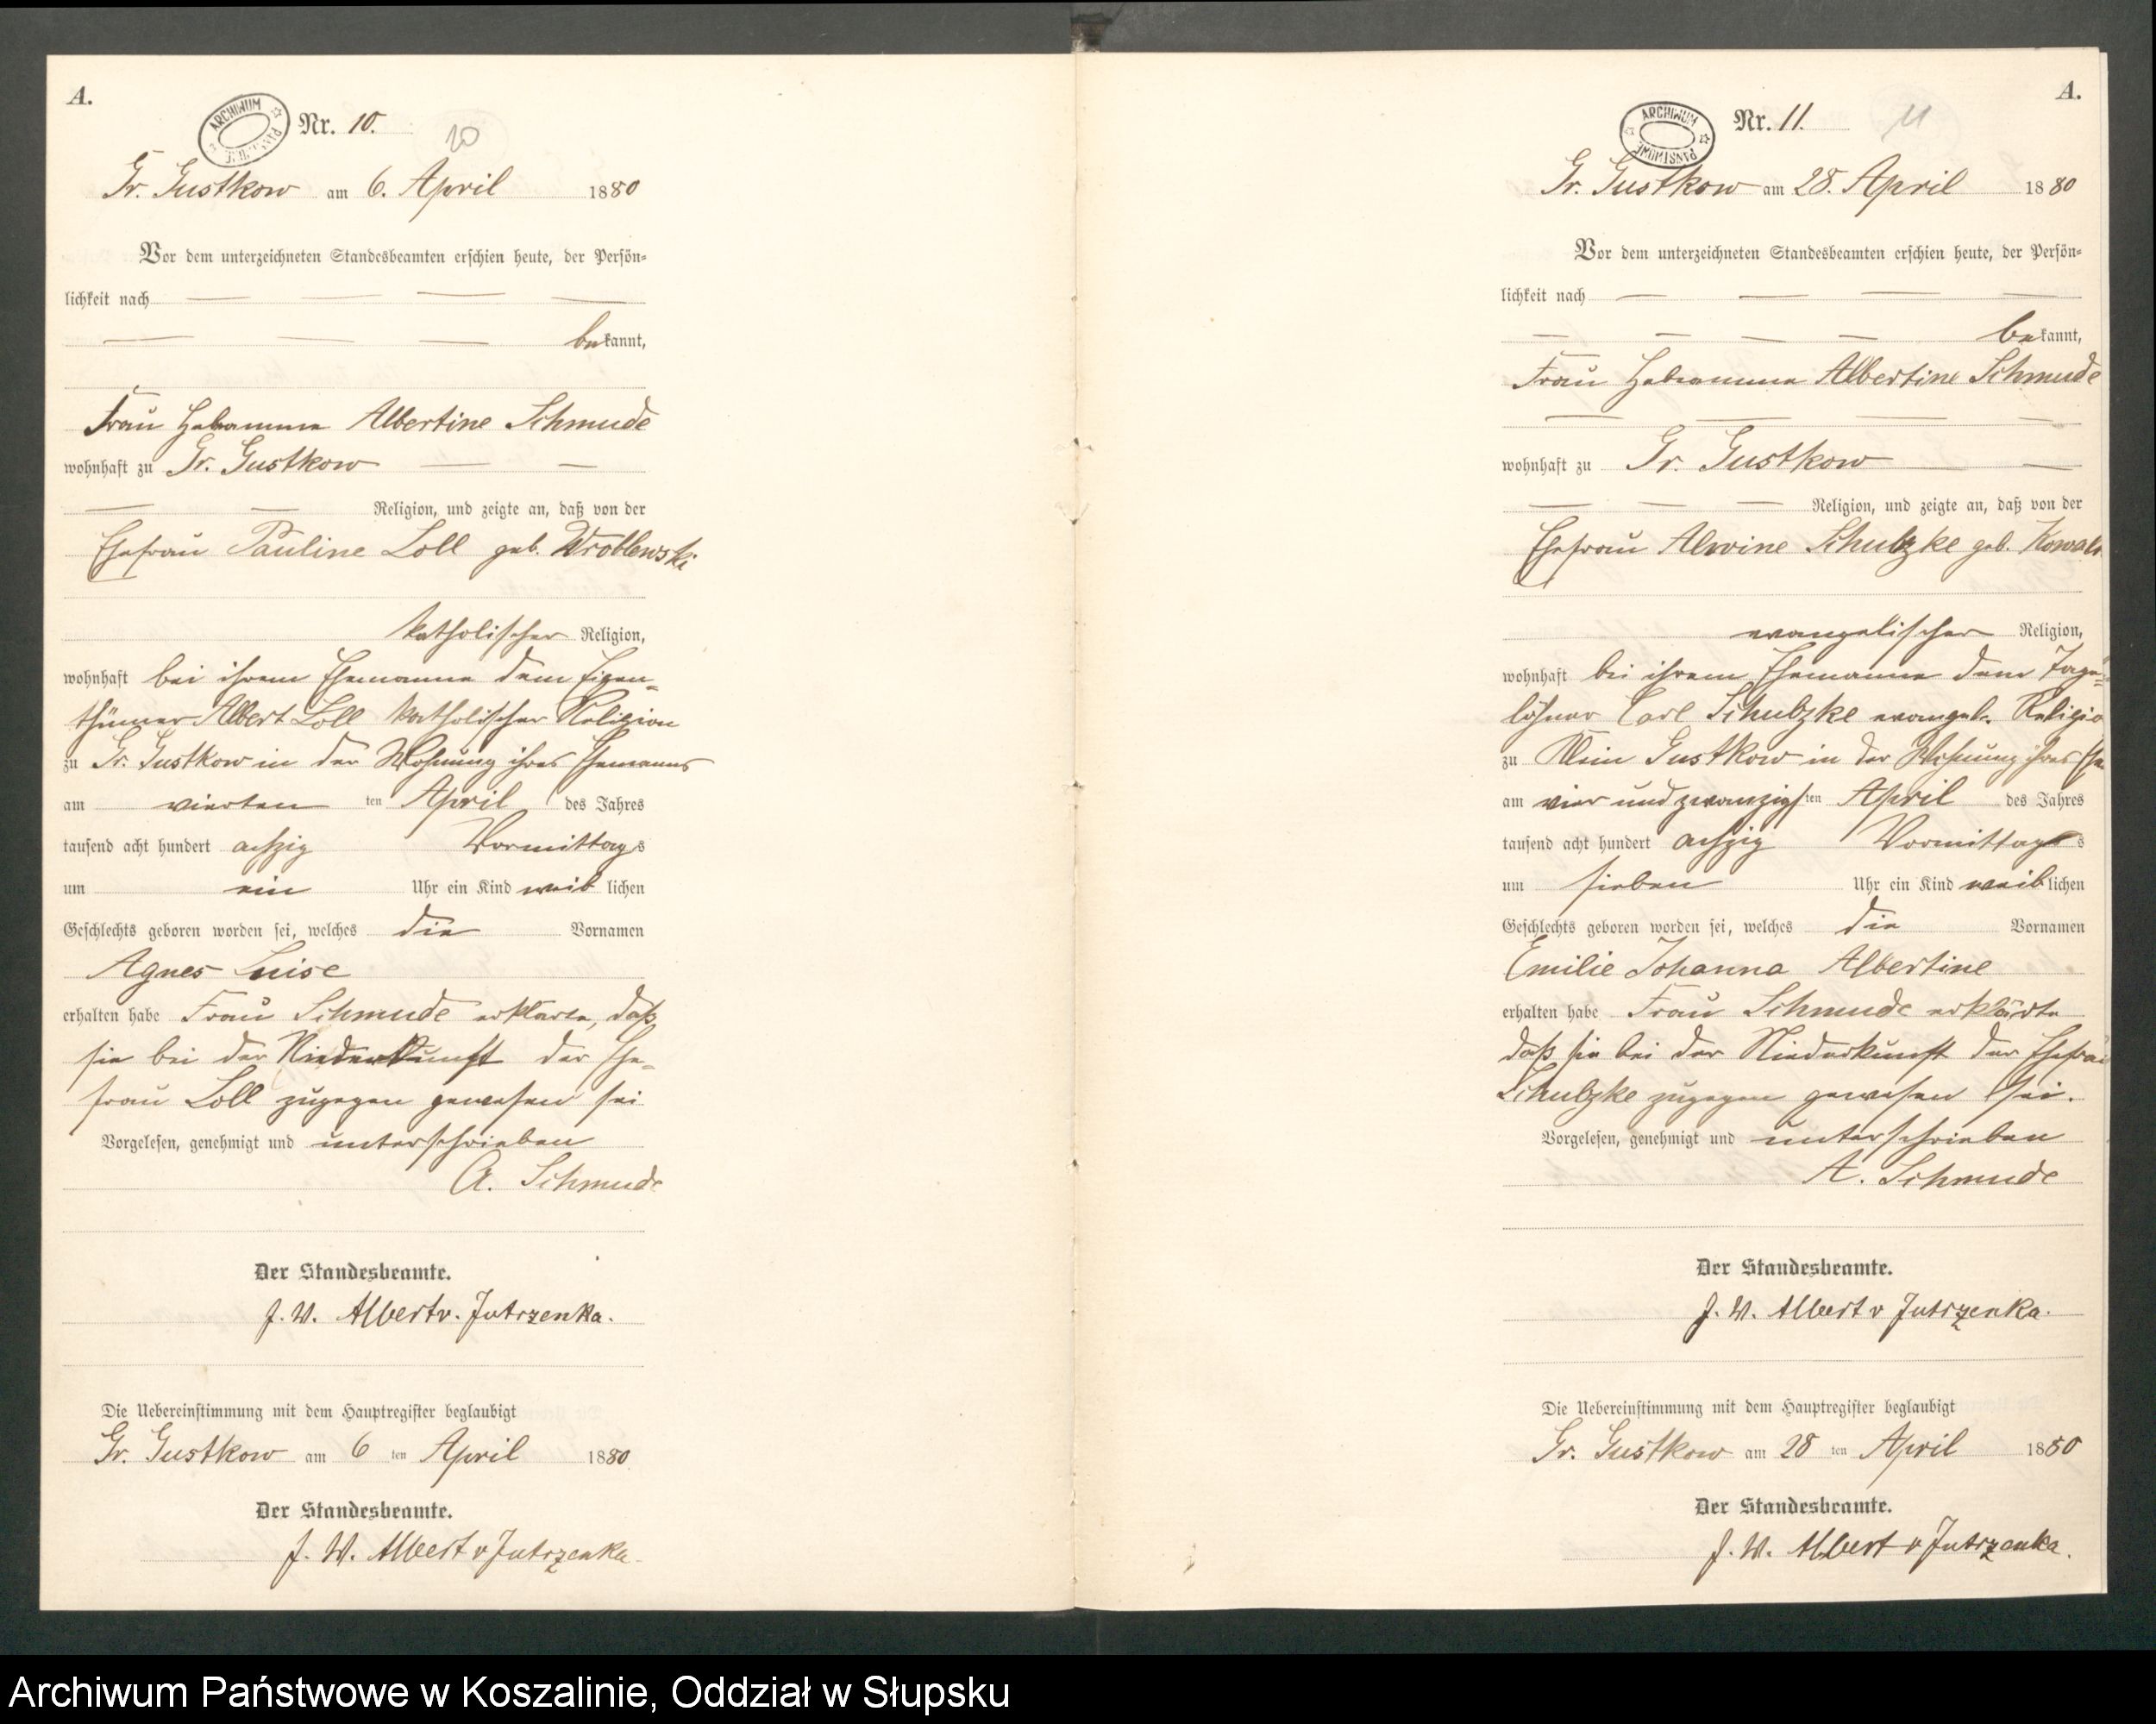 A.
ARCHIWUM PAŃSTWOWE
Nr. 10.
10
Gr. Gustkow am 6. April 1880
Vor dem unterzeichneten Standesbeamten erschien heute, der Persön-
lichkeit nach
bekannt,
Frau Hebamme Albertine Schmude
wohnhaft zu Gr. Gustkow
Religion, und zeigte an, daß von der
Ehefrau Pauline Loll geb. Wroblewski
katholischer Religion,
wohnhaft bei ihrem Ehemanne dem Eigen-
thümer Albert Loll katholischer Religion
zu Gr. Gustkow in der Wohnung ihres Ehemanns
am vierten ten April des Jahres
tausend acht hundert achzig Vormittags
um ein Uhr ein Kind weiblichen
Geschlechts geboren worden sei, welches die Vornamen
Agnes Luise
erhalten habe Frau Schmude erklärte, daß
sie bei der Niederkunft der Ehe-
frau Loll zugegen gewesen sei
Vorgelesen, genehmigt und unterschrieben
A. Schmude
Der Standesbeamte.
J. W. Albert v. Jutrzenka.
Die Uebereinstimmung mit dem Hauptregister beglaubigt
Gr. Gustkow am 6 ten April 1880
Der Standesbeamte.
J. W. Albert v Jutrzenka.
A.
ARCHIWUM PAŃSTWOWE
Nr. 11.
11
Gr. Gustkow am 28. April 1880
Vor dem unterzeichneten Standesbeamten erschien heute, der Persön-
lichkeit nach
bekannt,
Frau Hebamme Albertine Schmude
wohnhaft zu Gr. Gustkow
Religion, und zeigte an, daß von der
Ehefrau Alwine Schulzke geb. Kowals
evangelischer Religion,
wohnhaft bei ihrem Ehemanne dem Tage-
löhner Carl Schulzke evangel. Religio
zu Klein Gustkow in der Wohnung ihres Ehe
am vier und zwanzigsten April des Jahres
tausend acht hundert achzig Vormittags
um sieben Uhr ein Kind weiblichen
Geschlechts geboren worden sei, welches die Vornamen
Emilie Johanna Albertine
erhalten habe Frau Schmude erklärte
daß sie bei der Niederkunft der Ehefrau
Schulzke zugegen gewesen sei.
Vorgelesen, genehmigt und unterschrieben
A. Schmude
Der Standesbeamte.
J. W. Albert v Jutrzenka.
Die Uebereinstimmung mit dem Hauptregister beglaubigt
Gr. Gustkow am 28 ten April 1880
Der Standesbeamte.
J. W. Albert v Jutrzenka.
Archiwum Państwowe w Koszalinie, Oddział w Słupsku